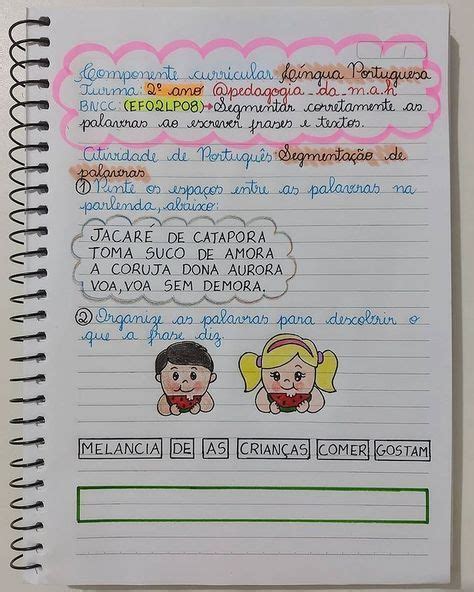 Componente curricular Língua Portuguesa
Turma: 2º ano @pedagogia_da_m.a.h
BNCC: (EF02LP08)→Segmentar corretamente as
palavras ao escrever frases e textos.
Atividade de Português Segmentação de
palavras
① Pinte os espaços entre as palavras na
parlenda, abaixo:
JACARÉ DE CATAPORA
TOMA SUCO DE AMORA
A CORUJA DONA AURORA
VOA, VOA SEM DEMORA.
② Organize as palavras para descobrir o
que a frase diz.
MELANCIA DE AS CRIANÇAS COMER GOSTAM